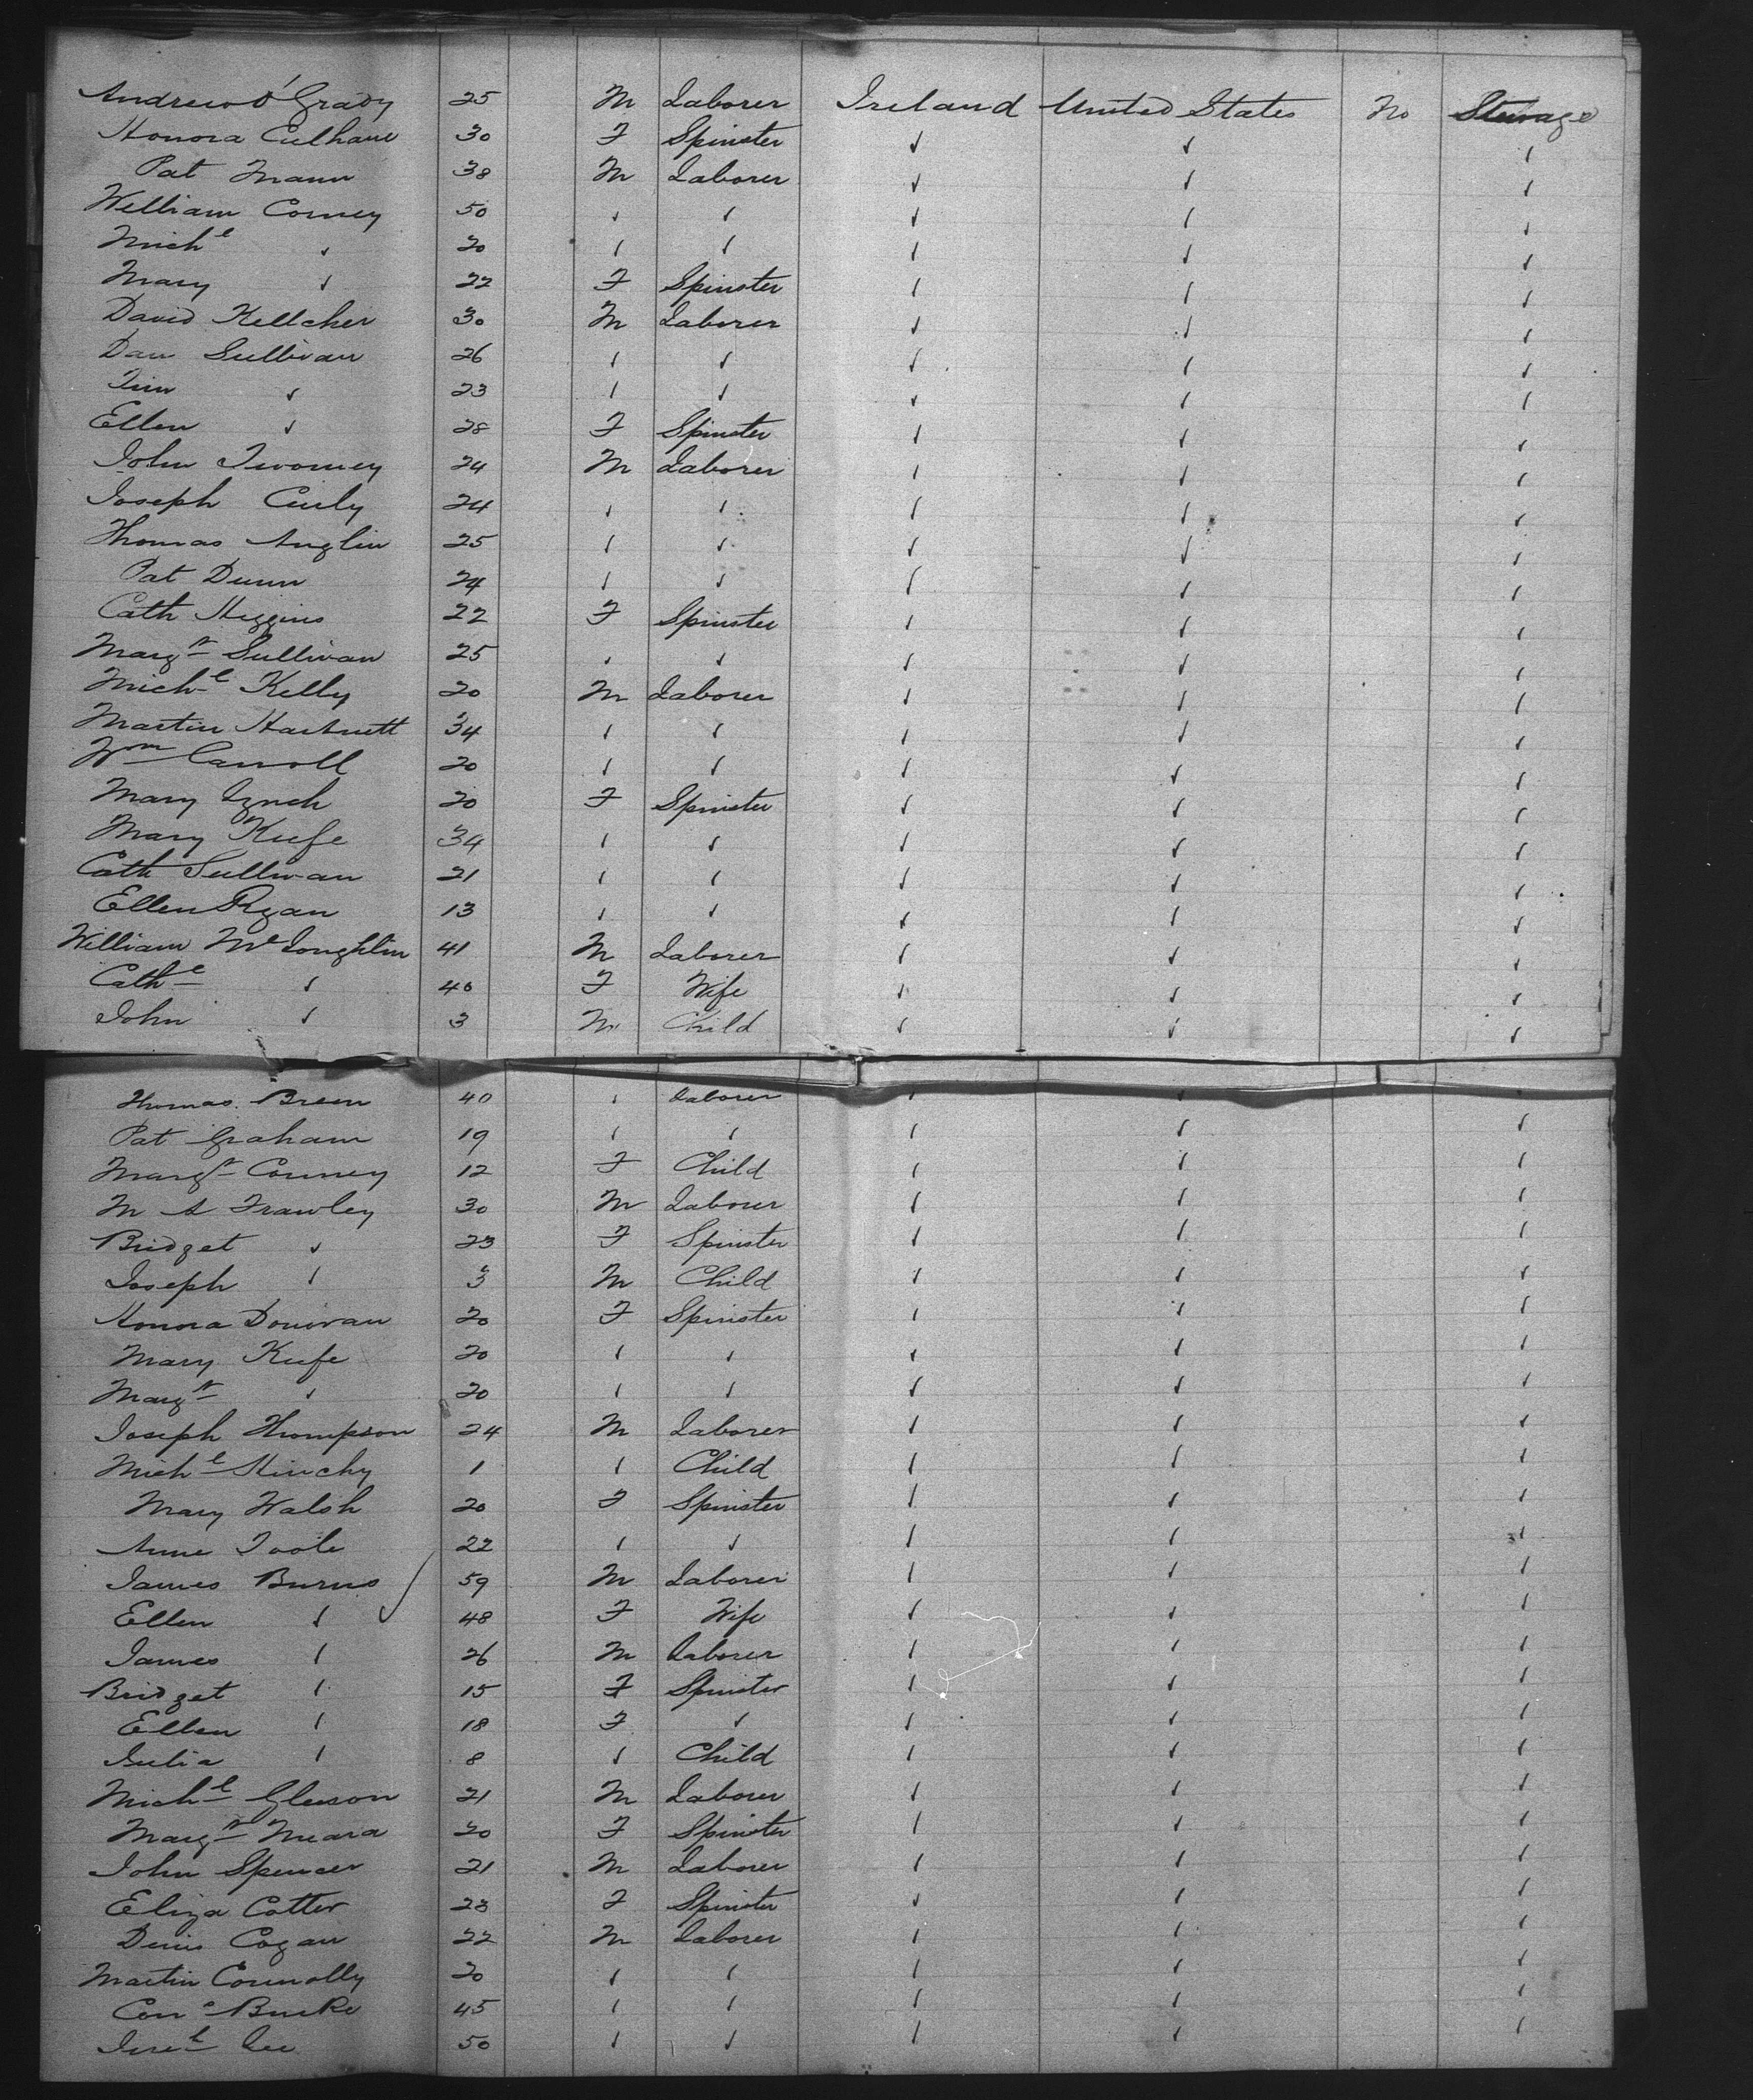 Andrew O'Grady 25 M Laborer Ireland United States No Steerage
Honora Culhane 30 F Spinster ✓ ✓ ✓
Pat Mann 38 M Laborer ✓ ✓ ✓
William Conney 50 ✓ ✓ ✓ ✓ ✓
Mich^l ✓ 20 ✓ ✓ ✓ ✓ ✓
Mary ✓ 22 F Spinster ✓ ✓ ✓
David Kellcher 30 M Laborer ✓ ✓ ✓
Dan Sullivan 26 ✓ ✓ ✓ ✓ ✓
Tim ✓ 23 ✓ ✓ ✓ ✓ ✓
Ellen ✓ 28 F Spinster ✓ ✓ ✓
John Twomey 24 M Laborer ✓ ✓ ✓
Joseph Curly 24 ✓ ✓ ✓ ✓ ✓
Thomas Anglin 25 ✓ ✓ ✓ ✓ ✓
Pat Dunn 24 ✓ ✓ ✓ ✓ ✓
Cath Higgins 22 F Spinster ✓ ✓ ✓
Marg^t Sullivan 25 ✓ ✓ ✓ ✓ ✓
Mich^l Kelly 20 M Laborer ✓ ✓ ✓
Martin Hartnett 34 ✓ ✓ ✓ ✓ ✓
W^m Carroll 20 ✓ ✓ ✓ ✓ ✓
Mary Lynch 20 F Spinster ✓ ✓ ✓
Mary Keefe 34 ✓ ✓ ✓ ✓ ✓
Cath Sullivan 21 ✓ ✓ ✓ ✓ ✓
Ellen Ryan 13 ✓ ✓ ✓ ✓ ✓
William M^cLoughlin 41 M Laborer ✓ ✓ ✓
Cath^e ✓ 40 F Wife ✓ ✓ ✓
John ✓ 3 M Child ✓ ✓ ✓
Thomas Breen 40 ✓ Laborer ✓ ✓ ✓
Pat Graham 19 ✓ ✓ ✓ ✓ ✓
Marg^t Conney 12 F Child ✓ ✓ ✓
M A Frawley 30 M Laborer ✓ ✓ ✓
Bridget ✓ 23 F Spinster ✓ ✓ ✓
Joseph ✓ 3 M Child ✓ ✓ ✓
Honora Donovan 20 F Spinster ✓ ✓ ✓
Mary Keefe 20 ✓ ✓ ✓ ✓ ✓
Marg^t ✓ 20 ✓ ✓ ✓ ✓ ✓
Joseph Thompson 24 M Laborer ✓ ✓ ✓
Mich^l Hinchy 1 ✓ Child ✓ ✓ ✓
Mary Walsh 20 F Spinster ✓ ✓ ✓
Anne Toole 22 ✓ ✓ ✓ ✓ ✓
James Burns 59 M Laborer ✓ ✓ ✓
Ellen ✓ 48 F Wife ✓ ✓ ✓
James ✓ 26 M Laborer ✓ ✓ ✓
Bridget ✓ 15 F Spinster ✓ ✓ ✓
Ellen ✓ 18 F ✓ ✓ ✓ ✓
Julia ✓ 8 ✓ Child ✓ ✓ ✓
Mich^l Gleeson 21 M Laborer ✓ ✓ ✓
Marg^t Meara 20 F Spinster ✓ ✓ ✓
John Spencer 21 M Laborer ✓ ✓ ✓
Eliza Cotter 23 F Spinster ✓ ✓ ✓
Denis Cogan 22 M Laborer ✓ ✓ ✓
Martin Connolly 20 ✓ ✓ ✓ ✓ ✓
Con^s Burke 45 ✓ ✓ ✓ ✓ ✓
Lee 50 ✓ ✓ ✓ ✓ ✓